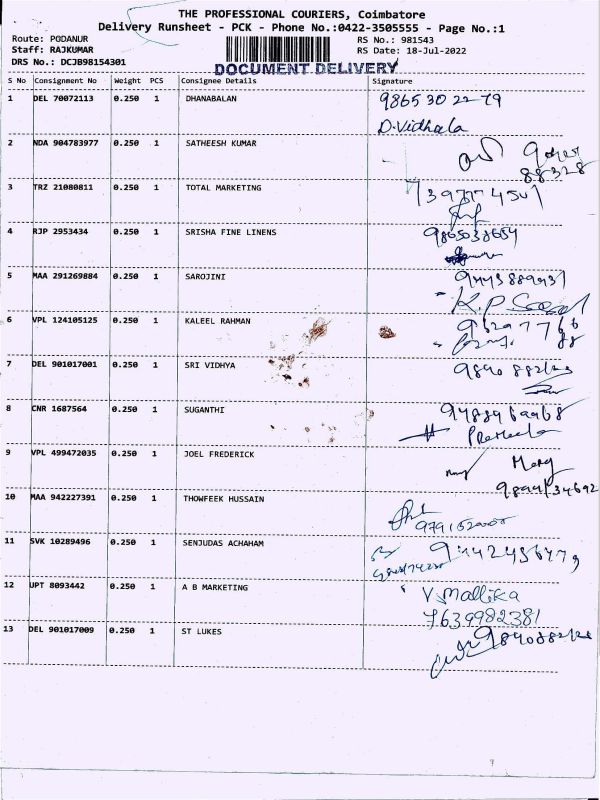 THE PROFESSIONAL COURIERS, Coimbatore
Delivery Runsheet - PCK - Phone No.:0422-3505555 - Page No.:1
Route: PODANUR RS No.: 981543
Staff: RAJKUMAR RS Date: 18-Jul-2022
DRS No.: DCJB98154301 DOCUMENT DELIVERY
S No Consignment No Weight PCS Consignee Details Signature
1 DEL 70072113 0.250 1 DHANABALAN 9865302279
D.Vidhala
2 NDA 904783977 0.250 1 SATHEESH KUMAR
88328
3 TRZ 21080811 0.250 1 TOTAL MARKETING
4 RJP 2953434 0.250 1 SRISHA FINE LINENS 9865038654
5 MAA 291269884 0.250 1 SAROJINI
6 VPL 124105125 0.250 1 KALEEL RAHMAN
7 DEL 901017001 0.250 1 SRI VIDHYA
8 CNR 1687564 0.250 1 SUGANTHI
9 VPL 499472035 0.250 1 JOEL FREDERICK
Mary
10 MAA 942227391 0.250 1 THOWFEEK HUSSAIN
11 SVK 10289496 0.250 1 SENJUDAS ACHAHAM
12 UPT 8093442 0.250 1 A B MARKETING V.Mallika
7639982381
13 DEL 901017009 0.250 1 ST LUKES